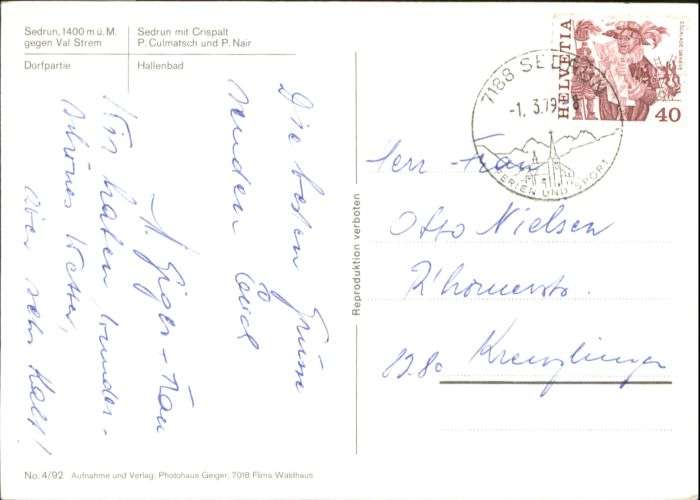 Sedrun, 1400 m ü. M.
gegen Val Strem
Sedrun mit Crispalt
P. Culmatsch und P. Nair
Dorfpartie
Hallenbad
Die besten Grüsse
senden Euch
H. Giger-Frau
Wir haben wunder-
schönes Wetter,
aber sehr kalt!
Reproduktion verboten
7188 SEDRUN
-1. 3.79
FERIEN UND SPORT
HELVETIA
40
Herr Frau
Otto Nielsen
Kreuzlingen
No. 4/92 Aufnahme und Verlag: Photohaus Geiger, 7018 Flims Waldhaus